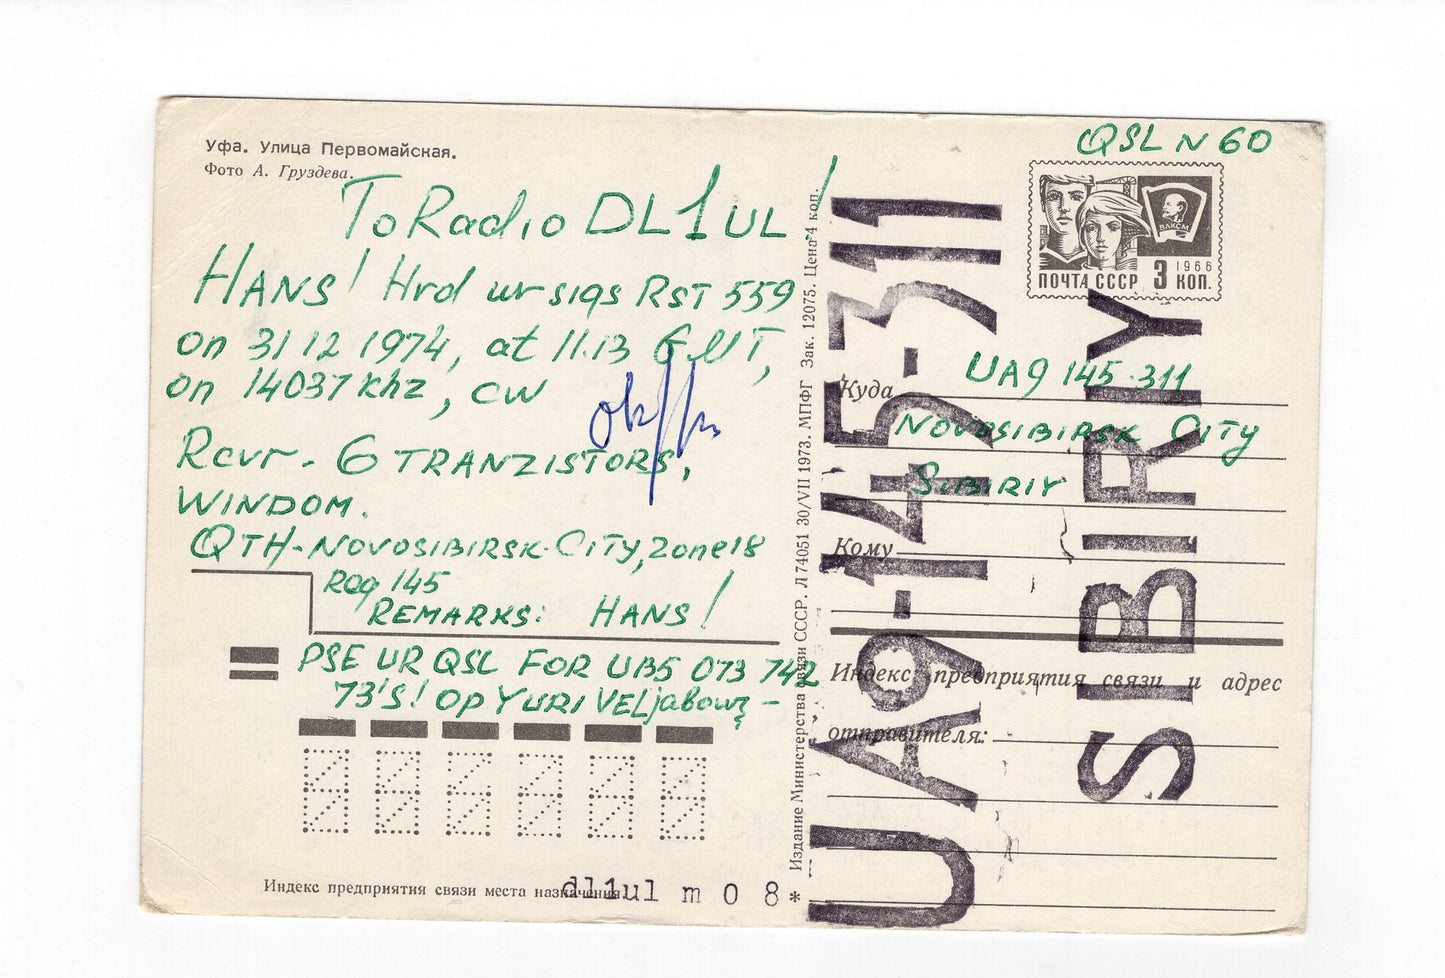 Уфа. Улица Первомайская.
Фото А. Груздева.
To Radio DL1UL!
HANS! Hrd ur sigs RST 559
on 31 12 1974, at 11.13 GMT,
on 14037 khz, CW
Rcvr - 6 TRANZISTORS,
WINDOM.
QTH - NOVOSIBIRSK-CITY, zone 18
Reg 145
REMARKS: HANS!
PSE UR QSL FOR UB5 073 742
73'S! OP YURI
Индекс предприятия связи места назначения.
dl1ul m 0 8 *
Издание Министерства связи СССР. Л 74051 30/VII 1973. МПФГ Зак. 12075. Цена 4 коп.
QSL N 60
ВЛКСМ
1966
ПОЧТА СССР 3 КОП.
UA9-145-311
SIBIRIY
Куда UA9 145-311
NOVOSIBIRSK CITY
SIBIRIY
Кому
Индекс предприятия связи и адрес
отправителя: